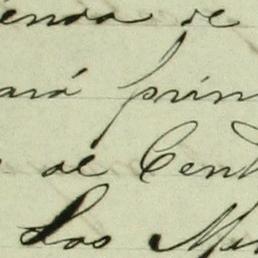 ienda de
ará prin
de Cent
Los Mu